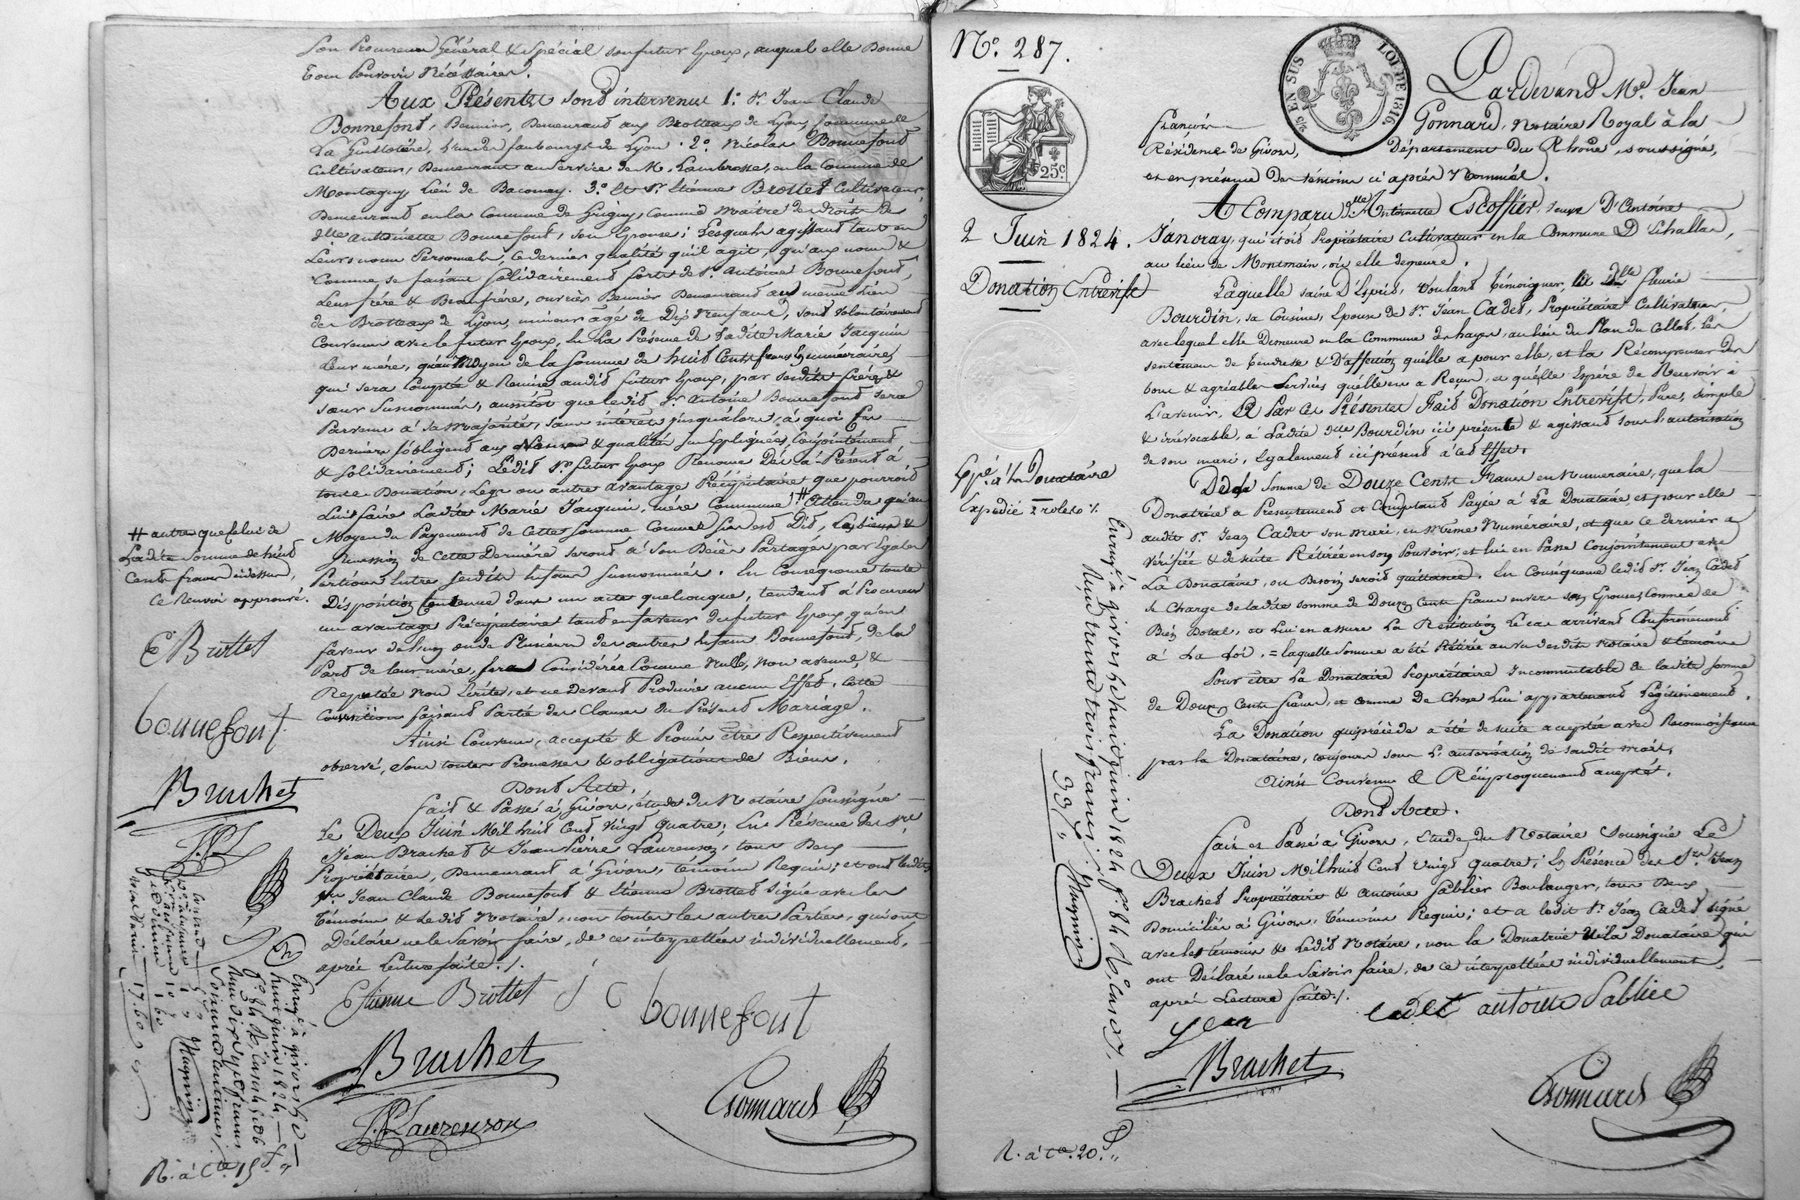 Son Procureur Général & Spécial son futur Epoux, auquel elle Donne
tous Pouvoirs Nécéssaires.
Aux Présentes sont intervenus 1.° Sr. Jean Claude
Bonnefond, Demeurant aux Brotteaux de Lyon Commune de
La Guillotière, l'un des faubourgs de Lyon. 2.° Nicolas Bonnefond
Cultivateur, Demeurant au Service de M. en la Commune de
Montagny Lieu de 3.° Et Sr. Etienne Brottet Cultivateur
Demeurant en la Commune de Grigny, Comme maitre des droits de
Dlle Antoinette Bonnefond, son Epouse; Lesquels agissant tant en
Leurs noms Personnels, le dernier qualité qu'il agit, qu'aux noms &
Comme se faisant Solidairement forts de Sr. Antoine Bonnefond,
Leur frère & Beaufrère, ouvrier Demeurant au même Lieu
des Brotteaux de Lyon, mineur agé de Dix neuf ans, sont volontairement
Convenus avec le futur Epoux, En La Présence de Ladite Marie Jacquin
Leur mère, qu'au Moyen de la Somme de huit Cents francs Numéraires
qui sera Comptée & Remise audit futur Epoux, par sesdits frères &
sœur Susnommés, aussitôt que ledit Sr. Antoine Bonnefond sera
Parvenu à sa Majorité, sans intérêts jusqu'alors; à quoi Ces
Derniers s'obligent aux Noms & qualités Sus Expliquées, Conjointement
& Solidairement; Ledit Sr. futur Epoux Renonce Dès-à-Présent à
toute Donation, Legs ou autre avantage Précipitaire que pourrait
Lui faire Ladite Marie Jacquin, mère Commune # Attendu qu'au
Moyen du Payement de Cette Somme Comme Il en est Dit, Les biens &
Succession de Cette Dernière seront à Son Décès Partagés par Egales
Portions Entre sesdits Enfans Susnommés. En Conséquence toute
Disposition Contenue dans un acte quelconque, tendant à Procurer
un avantage Précipitaire tant en faveur du futur Epoux qu'en
faveur de l'un ou de Plusieurs des autres Enfans Bonnefond, de la
Part de leur mère, sera Considérée Comme nulle, non avenue, &
Réputée non Ecrite, et ne Devant Produire aucun Effet. Cette
Convention faisant Partie des Clauses du Présent Mariage.
Ainsi Convenu, accepté & Promis être Respectivement
observé, Sous toutes Promesses & obligations de Biens.
Dont Acte.
Fait & Passé à Givors, étude du Notaire Soussigné
Le Deux Juin Mil huit Cent Vingt quatre; En Présence des Srs.
Jean Brachet & Jean Pierre Laurenson, tous Deux
Propriétaires, Demeurant à Givors, témoins Requis; et ont lesdits
Srs. Jean Claude Bonnefond & Etienne Brottet Signé avec les
Témoins & Ledit Notaire, non toutes les autres Parties, qui ont
Déclaré ne le Savoir faire, de ce interpellées individuellement,
après Lecture faite./.
Etienne Brottet J C bonnefont
Brachet
JP Laurenson
Gonnard
# autre que celui de
Ladite Somme de huit
Cents francs
Ce Renvoi approuvé.
E Brottet
bonnefont
Brachet
JPL
Enregé à givors le
huit juin 1824
R. à Cte. 15f.
N.° 287.
2/5 EN SUS
LOI DE 1816.
25c
2 Juin 1824.
Donation Entrevifs
Expé. à la Donataire
Expédié 2 roles
Pardevant Me. Jean
François Gonnard, Notaire Royal à la
Résidence de Givors, Département du Rhône, soussigné,
et en présence des témoins ci après Nommés.
A Comparu Dlle Antoinette Escoffier, Veuve D'Antoine
Janoray, qui étoit Propriétaire Cultivateur en la Commune D'Echallas,
au lieu de Montmain, où elle demeure.
Laquelle saine D'Esprit, Voulant témoigner, à Dlle fleurie
Bourdin, sa Cousine, Epouse de Sr. Jean Cadet, Propriétaire Cultivateur
avec lequel elle Demeure en la Commune des hayes, au lieu du Plan du Collet, Les
sentimens de tendresse & D'affection qu'elle a pour elle, et la Récompenser des
bons & agréables Services qu'elle en a Reçus, et qu'elle Espère de Recevoir à
L'avenir, a Par Ces Présentes Fait Donation Entrevifs, Pure, Simple
& irrévocable, à Ladite Dlle Bourdin ici présente & agissant sous l'autorisation
de son mari, Egalement ici présent à Cet Effet,
De la Somme de Douze Cents Francs en Numeraire, que la
Donatrice a Présentement et Comptant Payée à La Donataire, et pour elle
audit Sr. Jean Cadet son mari, en Même Numéraire, et que ce dernier a
Vérifiée & de suite Rétirée en son Pouvoir, et lui en Passe Conjointement avec
La Donataire, au Besoin seroit quittance. En Conséquence ledit Sr. Jean Cadet
se Charge de ladite Somme de Douze Cents francs envers son Epouse, Comme de
Bien Dotal, et Lui en assure La Restitution Le cas arrivant Conformément
à La Loi. = laquelle Somme a été Rétirée au vu desdits Notaire & témoins
Pour être La Donataire Propriétaire Incommutable de ladite somme
de Douze Cents francs, et comme De Chose Lui appartenant Légitimement.
La Donation qui précède a été de suite acceptée avec Reconnoissance
par la Donataire, toujours sous L'autorisation de sondit mari,
Ainsi Convenu & Réciproquement accepté.
Dont Acte.
Fait et Passé à Givors, Etude du Notaire Soussigné Le
Deux Juin Mil huit Cent Vingt quatre; En Présence des Srs. Jean
Brachet Propriétaire & Antoine Sablier Boulanger, tous Deux
Domiciliés à Givors, témoins Requis; et a ledit Sr. Jean Cadet signé
avec les témoins & Ledit Notaire, non la Donatrice & la Donataire qui
ont Déclaré ne le Savoir faire, de ce interpellées individuellement,
après Lecture faite./.
Jean Cadet antoine Sablier
Brachet
Gonnard
Enregé à givors le huit juin 1824
Reçu trente trois francs
33
R. à Cte. 20f.